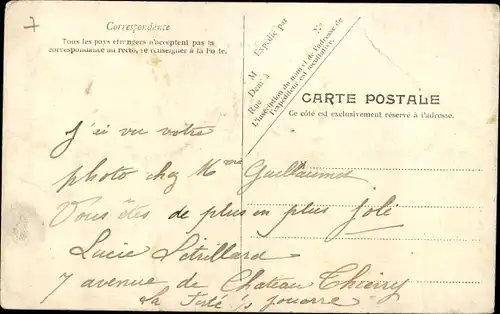 7
Correspondance
Tous les pays étrangers n'acceptent pas la
correspondance au recto, se renseigner à la Poste.
Expédié par
M
Demt à
Rue
No
L'inscription du nom et de l'adresse de
l'expéditeur est facultative.
CARTE POSTALE
Ce côté est exclusivement réservé à l'adresse.
J'ai vu votre
photo chez Mme Guillaumet
Vous êtes de plus en plus Joli
Lucie
7 avenue de Chateau Thierry
La Ferté s/s Jouarre